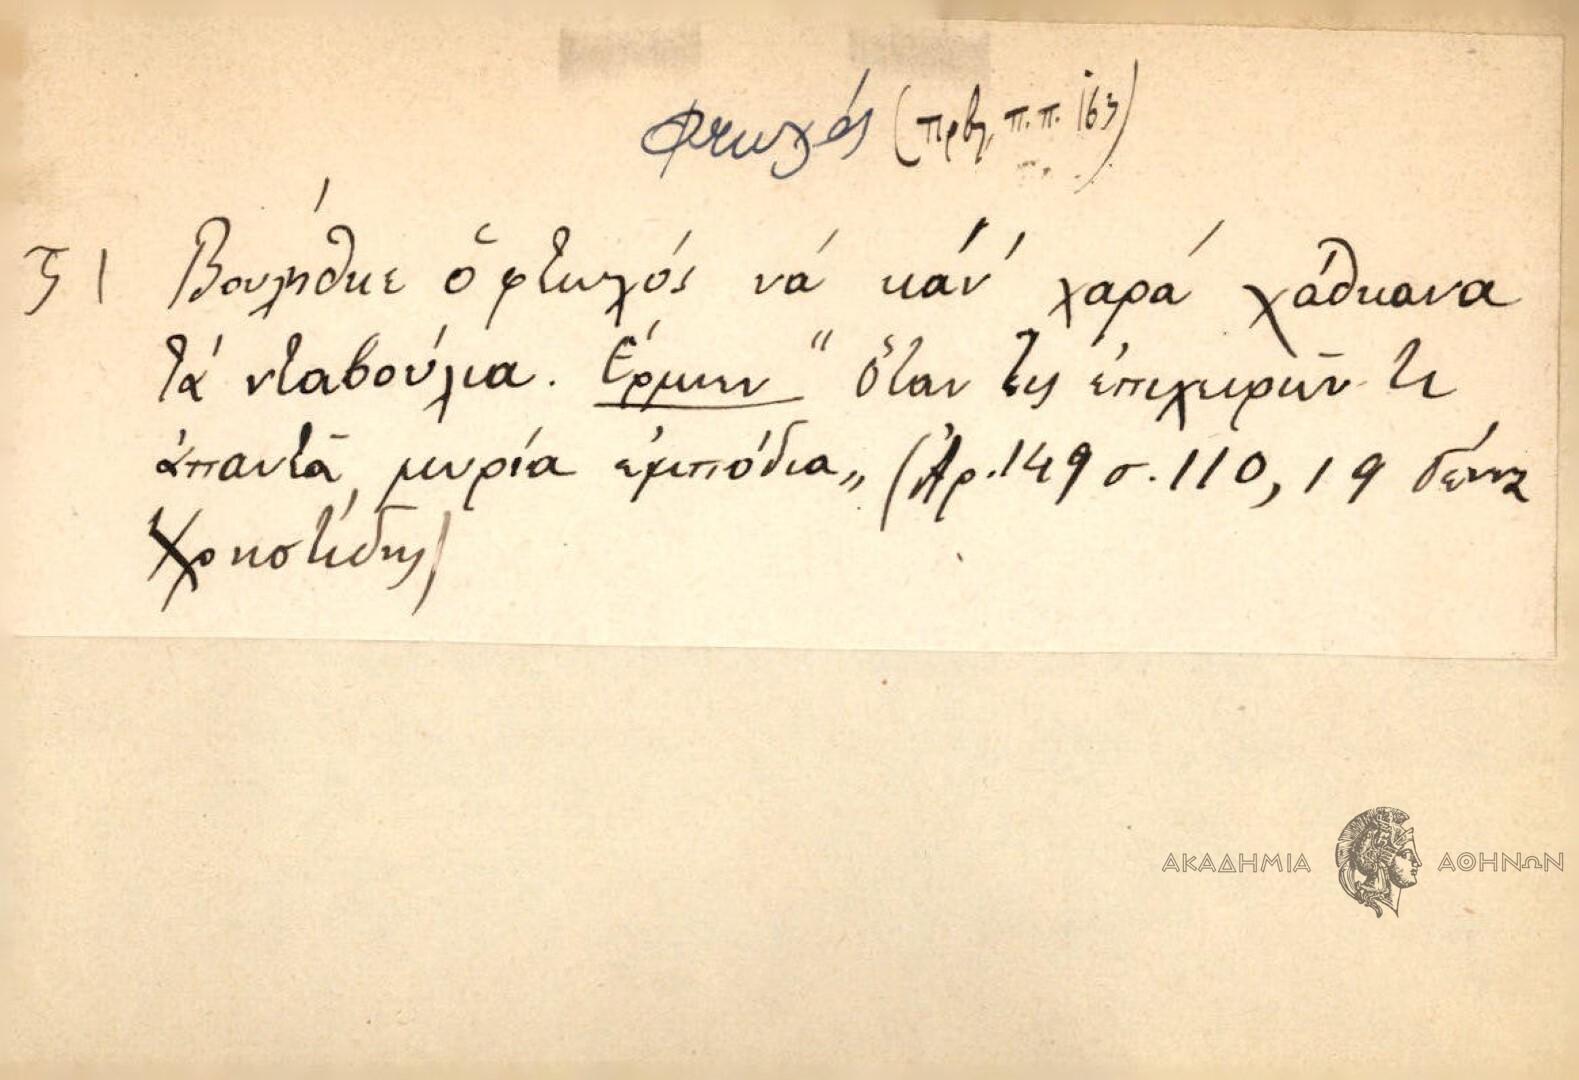 Φτωχός (πρβλ. π.π. 163)
51 Βουλήθκε ὁ φτωχός νά κάν' χαρά χάθκανα
τά νταβούλια. Ἑρμην " ὅταν τις ἐπιχειρῶν τι
ἀπαντᾶ μυρία ἐμπόδια„ (Ἀρ. 149 σ. 110, 19
Χρηστίδης)
ΑΚΑΔΗΜΙΑ ΑΘΗΝΩΝ